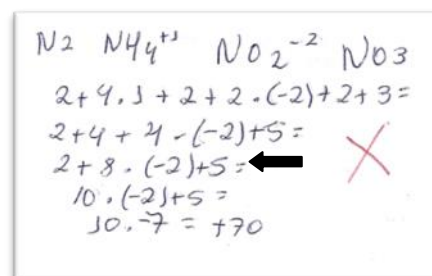 N2 NH4⁺¹ NO2⁻² NO3
2+4.1+2+2.(-2)+2+3=
2+4+4-(-2)+5=
2+8.(-2)+5=
10.(-2)+5=
10.-7=+70